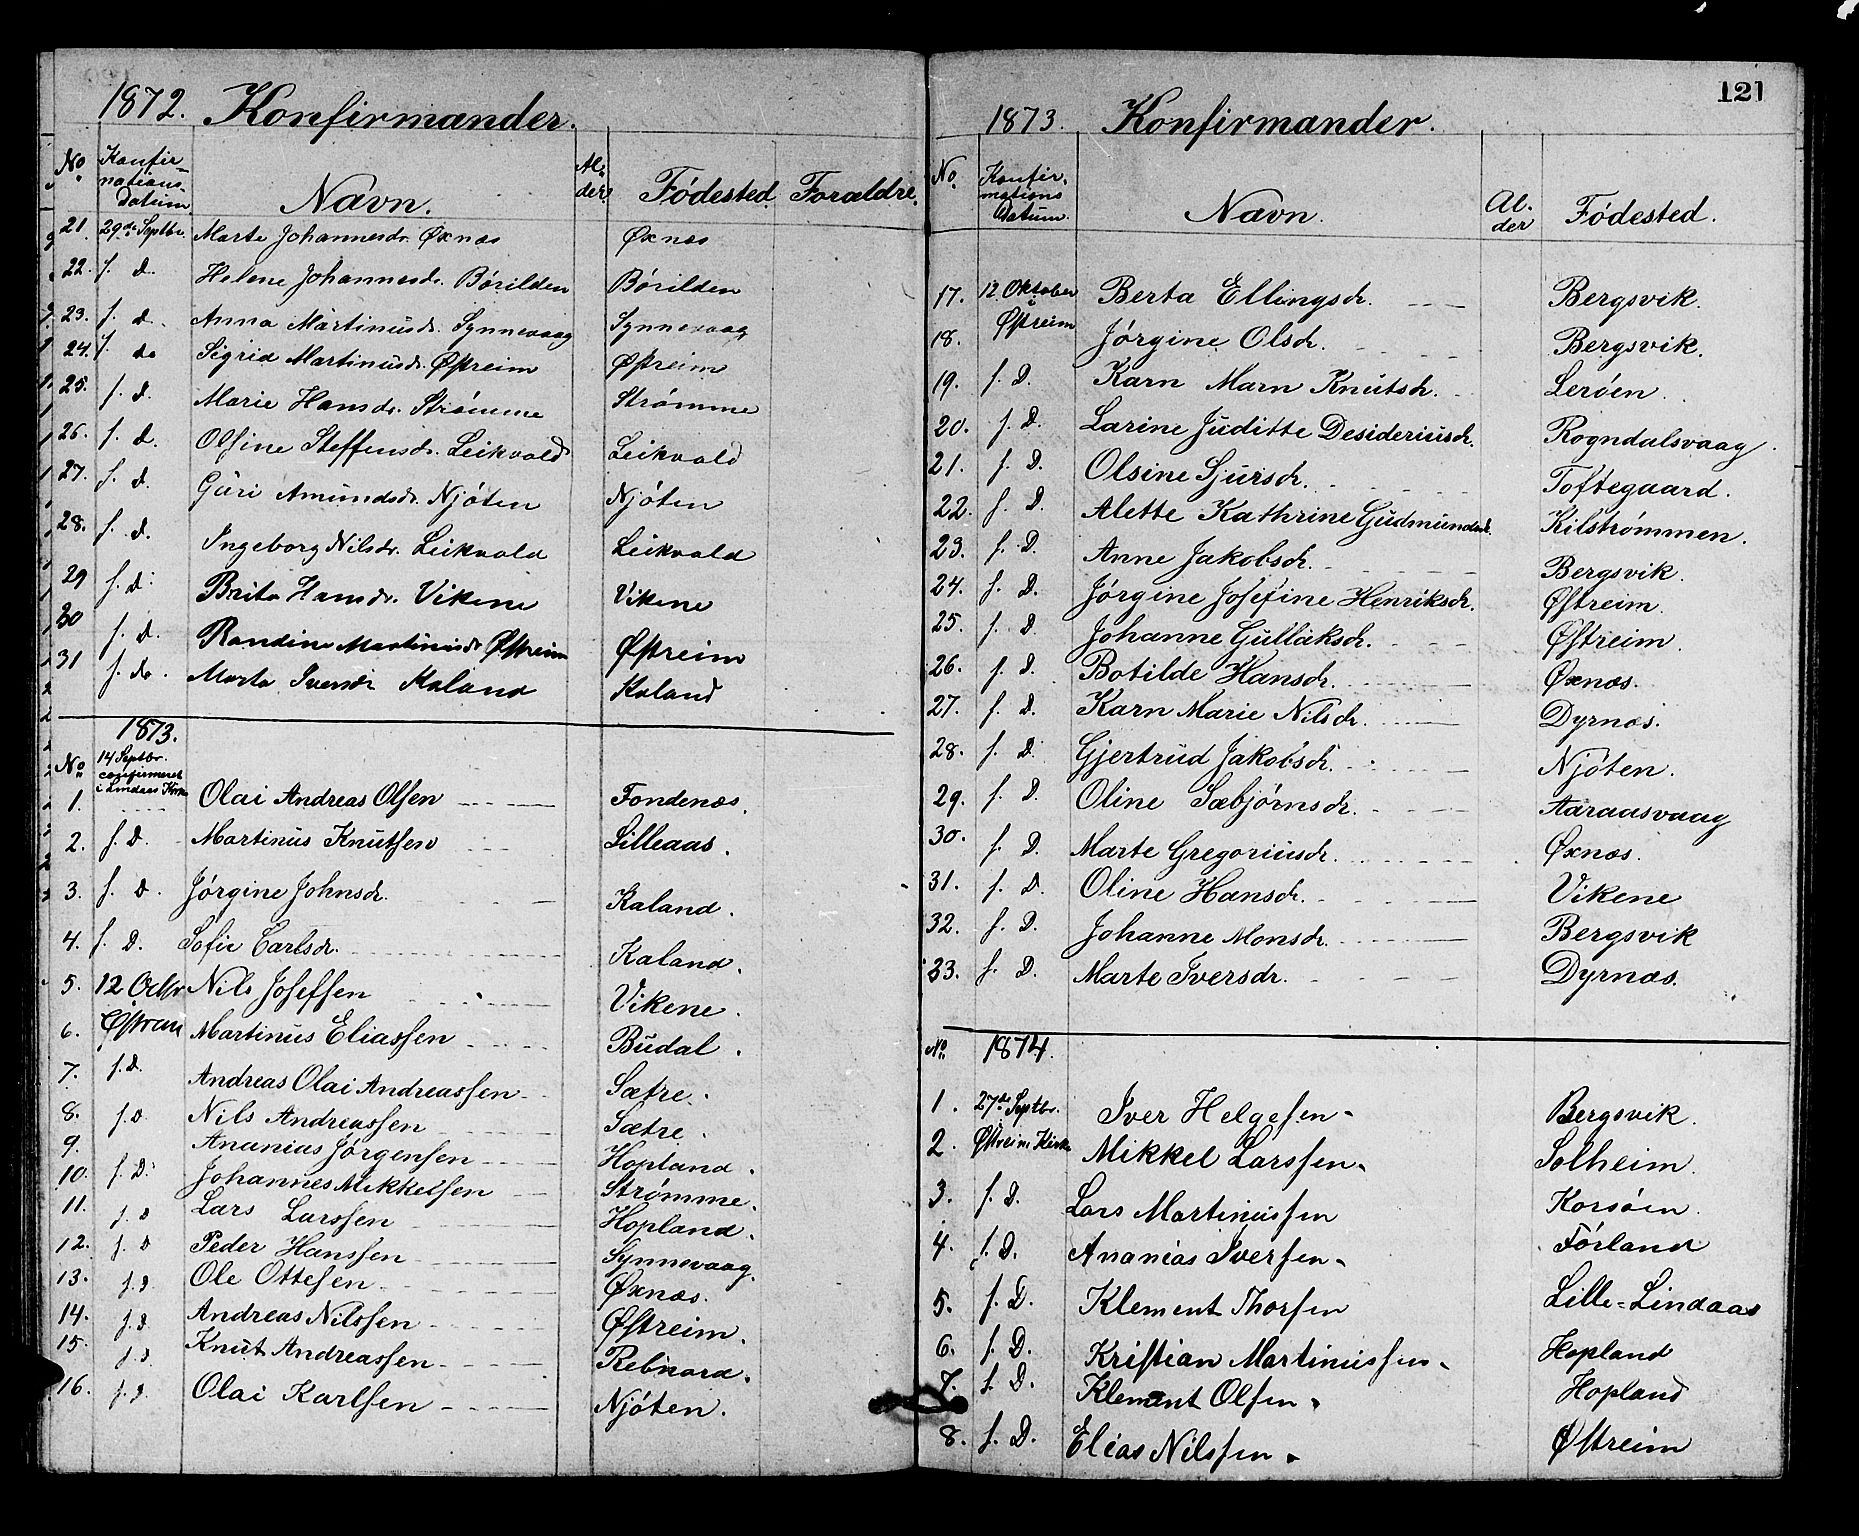 1872. Konfirmander.
No Konfirmations Datum. Navn. Alder. Fødested. Forældre.
21 29de Septbr. Marte Johannesdr. Øxnæs Øxnæs
22. f. d. Helene Johannesdr. Børilden Børilden
23. f. d. Anna Martinusdr. Synnevaag Synnevaag
24. f. do Sigrid Martinusdr. Østreim Østreim
25. f. d. Marie Hansdr. Strømme Strømme
26. f. d. Olsine Steffensdr. Leikvold Leikvold
27. f. d. Guri Amundsdr. Njøten Njøten
28. f. d. Ingeborg Nilsdr. Leikvold Leikvold
29 f. d. Brita Hansdr. Vikene Vikene
30 f. d. Randine Martinusdr Østreim Østreim
31 f. do. Marta Iversdr Kaland Kaland
1873.
No 14 Septbr. confirmeret i Lindaas Kirke
1. Olai Andreas Olsen Fondenæs.
2. f. D. Martinus Knutsen Lilleaas.
3. f. D. Jørgine Johnsdr. Kaland.
4. f. D. Sofie Carlsdr. Kaland.
5. 12 Octbr Nils Josefsen Vikene.
6. Martinus Eliassen Budal.
7. f. D. Andreas Olai Andreassen Sætre.
8. f. D Nils Andreassen Sætre.
9. Ananias Jørgensen Hopland.
10. f. D. Johannes Mikkelsen Strømme.
11. f. D Lars Larssen Hopland.
12. f. D Peder Hanssen Synnevaag.
13. f. D Ole Ottesen Øxnæs.
14. f. D Andreas Nilssen Østreim.
15. f. D Knut Andreassen Rebnord.
16. f. D. Olai Karlsen Njøten.
121
1873. Konfirmander.
No. Konfirmations Datum. Navn. Alder Fødested.
17. 12 Oktober i Berta Ellingsdr. Bergsvik.
18. Østreim Jørgine Olsdr. Bergsvik.
19. f. D. Karn Marn Knutsdr. Lerøen.
20. f. D. Larine Juditte Desideriusdr. Rogndalsvaag.
21. f. D. Olsine Sjursdr. Toftegaard.
22. f. D. Alette Kathrine Gudmundsdr. Kilstrømmen.
23. f. D. Anne Jakobsdr. Bergsvik.
24. f. D. Jørgine Josefine Henriksdr. Østreim.
25. f. D Johanne Gullaksdr. Østreim.
26. f. D. Botilde Hansdr. Øxnæs.
27. f. D. Karn Marie Nilsdr. Dyrnæs.
28. f. D. Gjertrud Jakobsdr. Njøten.
29. f. D. Oline Sæbjørnsdr. Aaraasvaag
30. f. D. Marte Gregoriusdr. Øxnæs.
31. f. D. Oline Hansdr. Vikene
32. f. D. Johanne Monsdr. Bergsvik
33. f. D. Marte Iversdr. Dyrnæs.
No. 1874.
1. 27de Septbr. Iver Helgesen Bergsvik.
2. Østreim Kirke Mikkel Larssen Solheim.
3. f. D. Lars Martinussen Korsøen.
4. f. D. Ananias Iversen Førland
5. f. D. Klement Thorsen Lille-Lindaas
6. f. D. Kristian Martinussen Hopland
7. f. D. Klement Olsen Hopland
8. f. D. Elias Nilssen Østreim